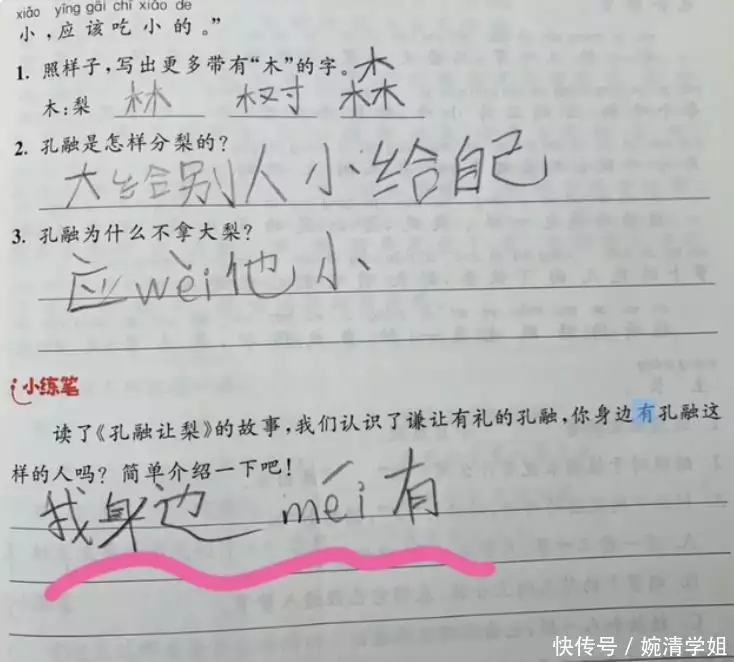 xiǎo yīng gāi chī xiǎo de
小，应该吃小的。”
1. 照样子，写出更多带有“木”的字。木
木：梨 林 树 森
2. 孔融是怎样分梨的？
大给别人小给自己
3. 孔融为什么不拿大梨？
应wèi他小
小练笔
读了《孔融让梨》的故事，我们认识了谦让有礼的孔融，你身边有孔融这
样的人吗？简单介绍一下吧！
我身边 méi有
快传号 / 婉清学姐